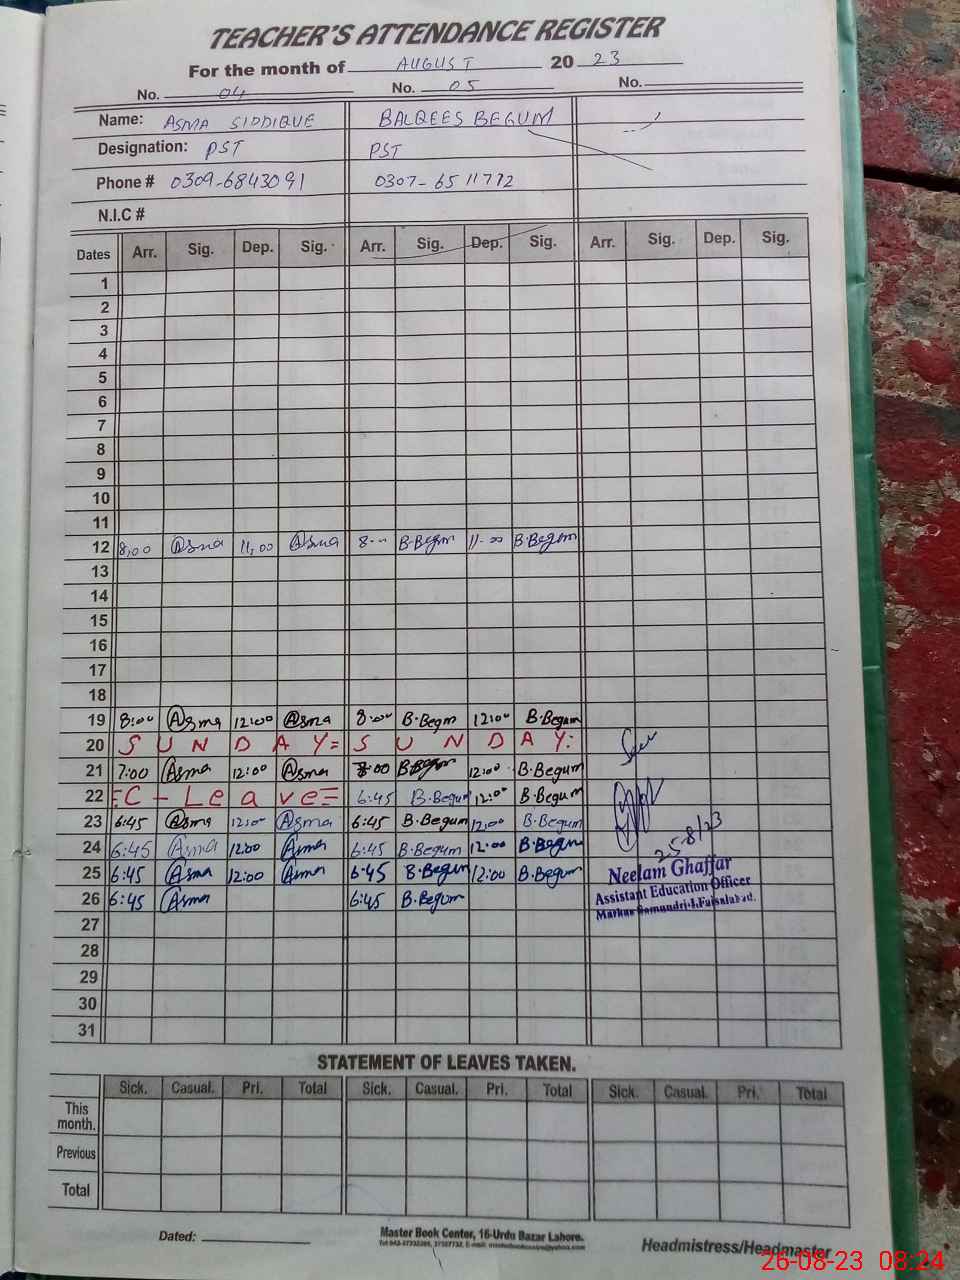 TEACHER'S ATTENDANCE REGISTER
For the month of AUGUST 20 23
No. 04 No. 05 No.
Name: ASMA SIDDIQUE BALQEES BEGUM
Designation: PST PST
Phone # 0309-6843091 0307-6511772
N.I.C #
Dates Arr. Sig. Dep. Sig. Arr. Sig. Dep. Sig. Arr. Sig. Dep. Sig.
1
2
3
4
5
6
7
8
9
10
11
12 8,00 Asma 11,00 Asma 8-- B.Begum 11-00 B.Begum
13
14
15
16
17
18
19 8:00 Asma 12:00 Asma 8:00 B.Begm 12:00 B.Begum
20 S U N D A Y= S U N D A Y:
21 7:00 Asma 12:00 Asma 7:00 B.Begum 12:00 B.Begum
22 :C - Leave= 6:45 B.Begum 12:00 B.Begum
23 6:45 Asma 12:00 Asma 6:45 B.Begum 12:00 B.Begum
24 6:45 Asma 12:00 Asma 6:45 B.Begum 12:00 B.Begum
25 6:45 Asma 12:00 Asma 6:45 B.Begum 12:00 B.Begum
26 6:45 Asma 6:45 B.Begum
25-8/23
Neelam Ghaffar
Assistant Education Officer
Markaz Samundri-I, Faisalabad.
27
28
29
30
31
STATEMENT OF LEAVES TAKEN.
Sick. Casual. Pri. Total Sick. Casual. Pri. Total Sick. Casual. Pri. Total
This month.
Previous
Total
Dated:
Master Book Center, 16-Urdu Bazar Lahore.
Headmistress/Headmaster
26-08-23 08:24